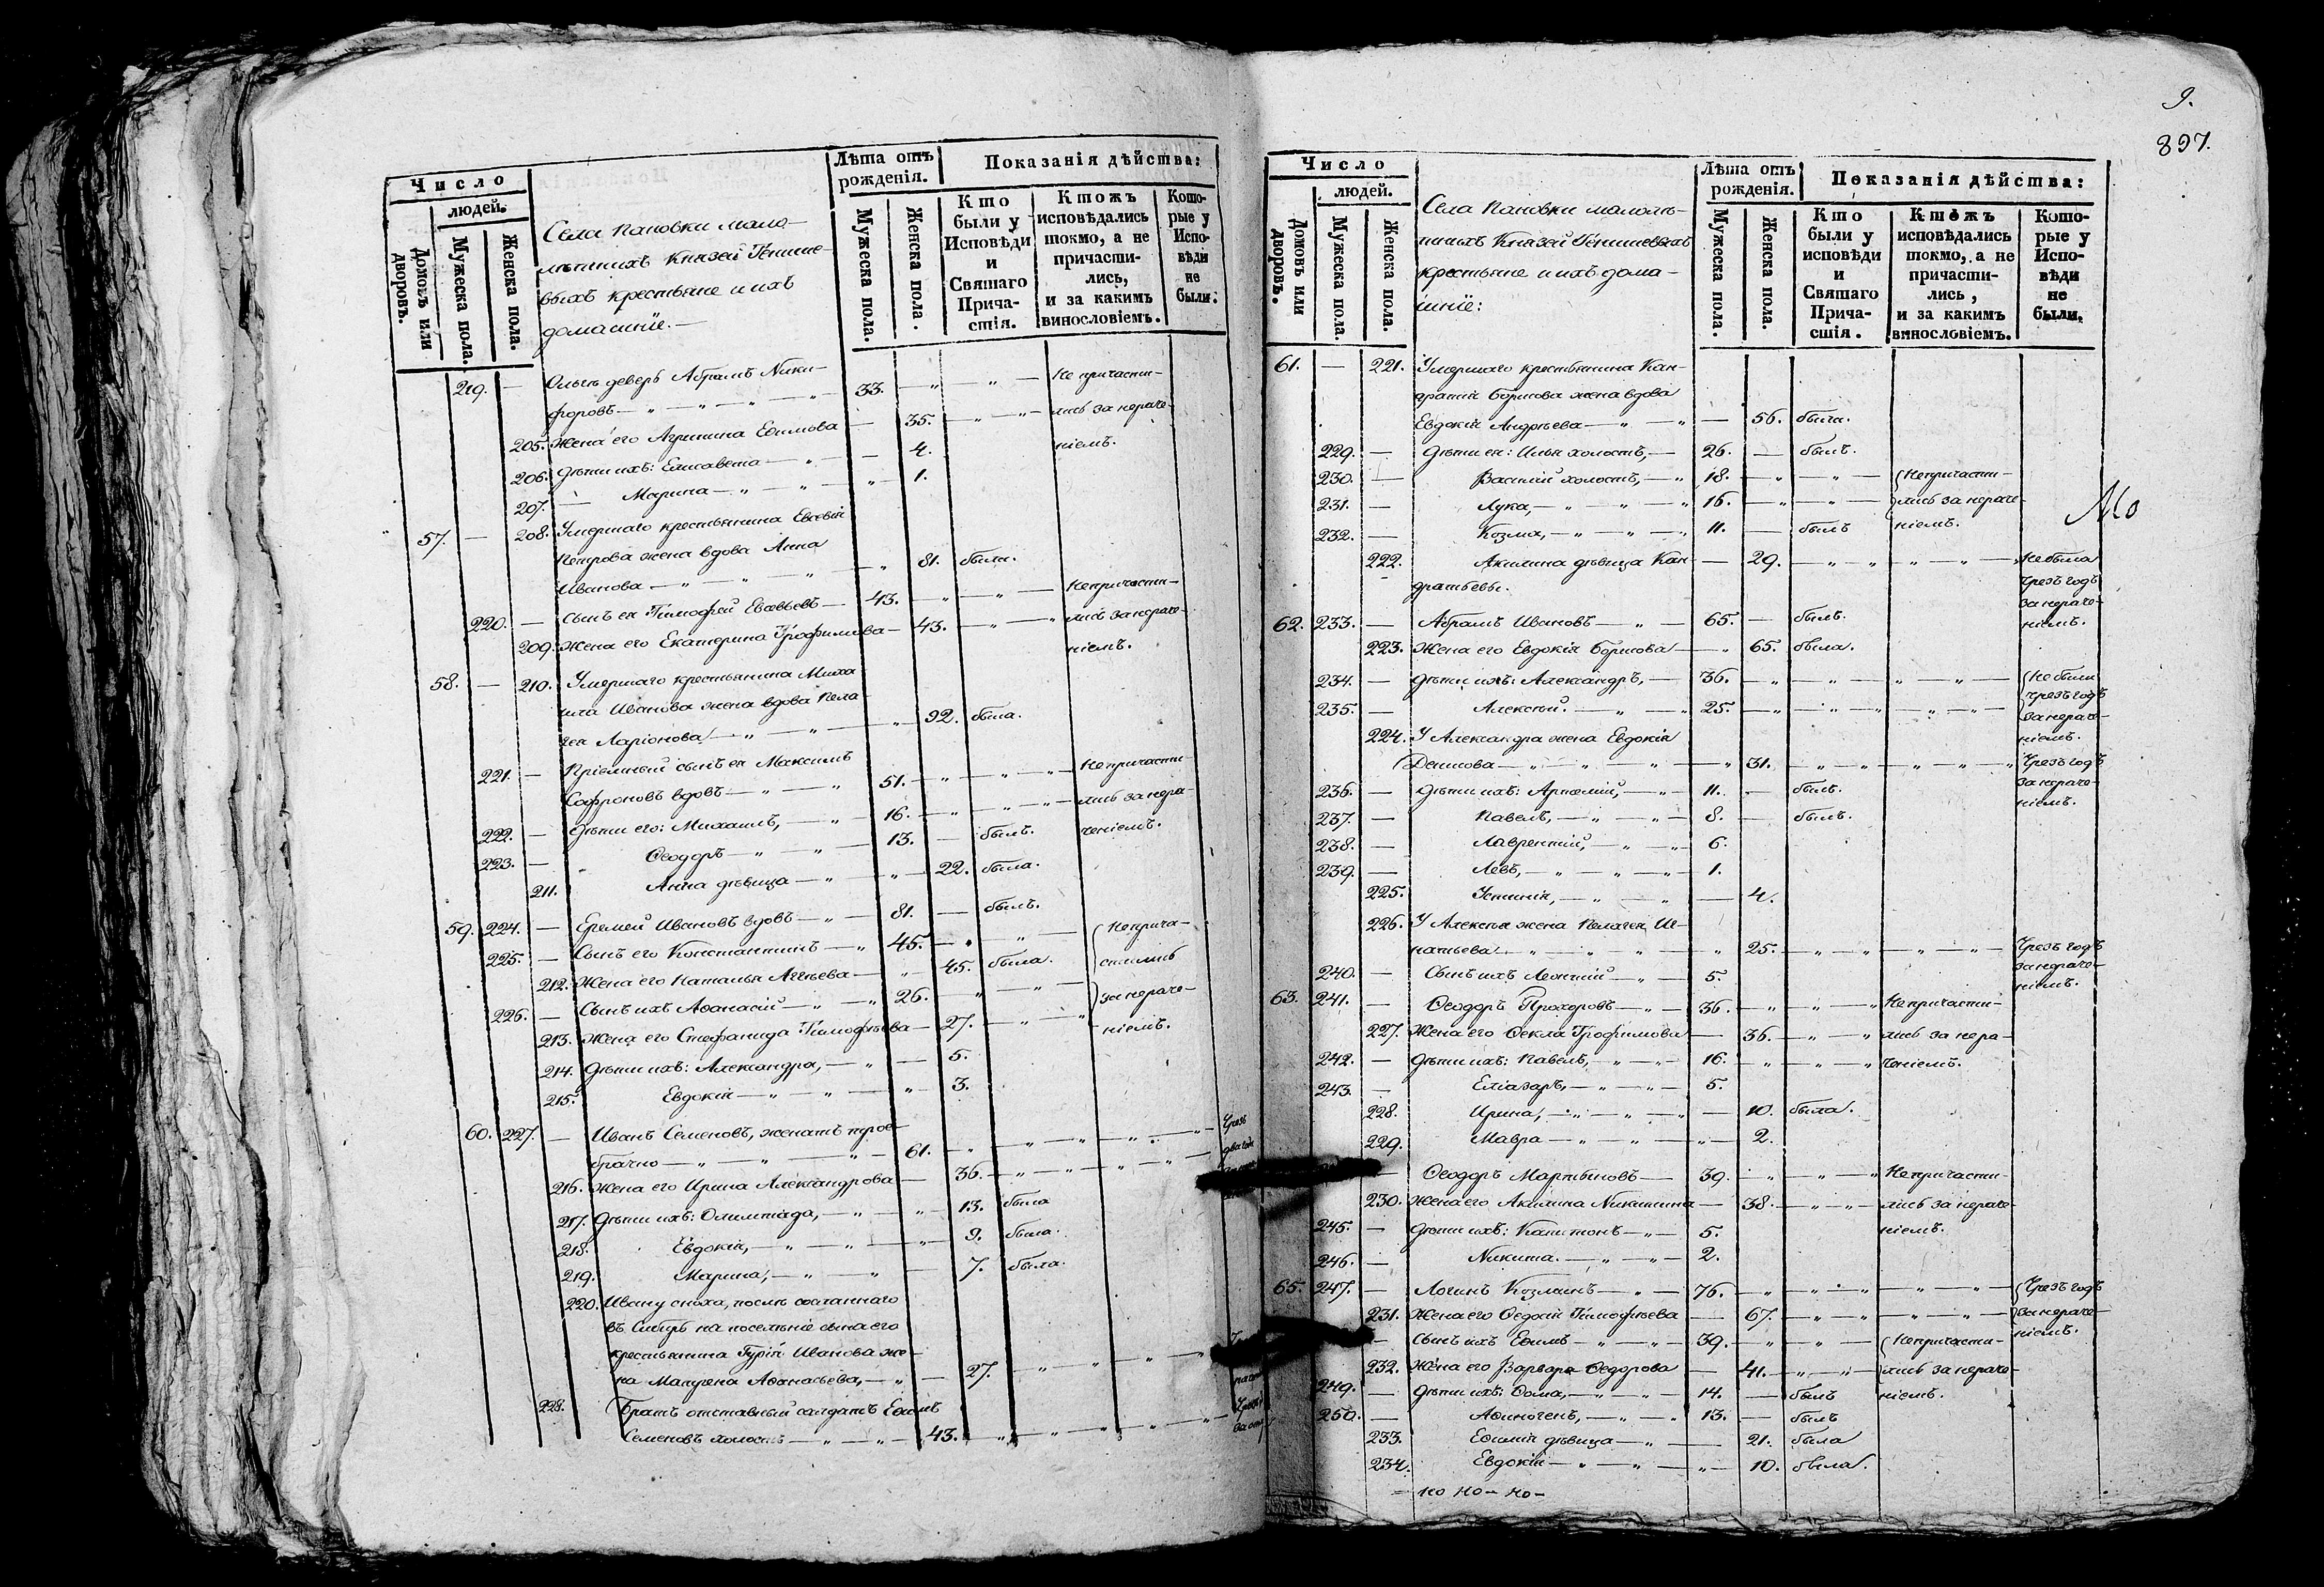 Число
людей.
Домовъ или дворовъ.
Мужеска пола.
Женска пола.
Села Пановки мало-
лѣтнихъ Князей Тенише-
выхъ крестьяне и ихъ
домашніе.—
Лѣта отъ рожденія.
Мужеска пола.
Женска пола.
Показанія дѣйства:
Кто были у Исповѣди и Святаго Прича-стія.
Ктожъ исповѣдались токмо, а не причасти-лись, и за какимъ винословіемъ.
Кото-рые у Испо-вѣди не были.
219. — Ольги деверь Абрамъ Ники- Не причасти-
форовъ — 33.
205. Жена его Агрипина Ефимова — 35. лись за нераче-
206. Дѣти ихъ: Елисавета — 4. ніемъ.
207. — Марина — 1.
57. — 208. Умершаго крестьянина Евсевія
Петрова жена вдова Анна
Иванова — 81. была.
220. — Сынъ ея Тимофей Евсевьевъ — 43. Непричасти-
209. Жена его Екатерина Трофимова — 43. лись за нераче-
ніемъ.
58. — 210. Умершаго крестьянина Миха
ила Иванова жена вдова Пела
гея Ларіонова — 92. была.
221. — Пріемный сынъ ея Максимъ
Сафроновъ вдовъ — 51. Непричасти-
222. — Дѣти его: Михаилъ, — 16. лись за нера-
223. — Ѳеодоръ — 13. — былъ. ченіемъ.
211. Анна дѣвица — 22. была.
59. 224. — Еремей Ивановъ вдовъ — 81. — былъ.
225. — Сынъ его Константинъ — 45. Неприча-
212. Жена его Наталья Агѣева — 45. была. стились
226. — Сынъ ихъ Аѳанасій — 26. за нераче-
213. Жена его Стефанида Тимофѣева — 27. ніемъ.
214. Дѣти ихъ: Александра, — 5.
215. Евдокія — 3.
60. 227. — Иванъ Семеновъ, женатъ трое-
брачно — 61. Чрезъ
216. Жена его Ирина Александрова — 36. два года
217. Дѣти ихъ: Олимпіада, — 13. была
218. Евдокія, — 9. была.
219. Марина, — 7. была.
220. Ивану сноха, послѣ сосланнаго
въ Сибирь на поселѣніе сына его
крестьянина Гурія Иванова же-
на Матрена Аѳанасьева, — 27.
228. Братъ отставный салдатъ Ефимъ
Семеновъ холостъ — 43.
9.
897.
Число
людей.
Домовъ или дворовъ.
Мужеска пола.
Женска пола.
Села Пановки малолѣ-
тнихъ Князей Тенишевыхъ
крестьяне и ихъ дома-
шніе:
Лѣта отъ рожденія.
Мужеска пола.
Женска пола.
Показанія дѣйства:
Кто были у исповѣди и Святаго Прича-стія.
Ктожъ исповѣдались токмо, а не причасти-лись, и за какимъ винословіемъ.
Кото-рые у Испо-вѣди не были.
61. — 221. Умершаго крестьянина Кон-
дратія Борисова жена вдова
Евдокія Андрѣева — 56. была.
229. — Дѣти ея: Илья холостъ, — 26. — былъ.
230. — Василій холостъ, — 18. Непричасти-
231. — Лука, — 16. лись за нераче-
232. — Козма, — 11. — былъ ніемъ.
222. Акилина дѣвица Кон- — 29. Не была
дратьевы. чрезъ годъ
за нераче-
62. 233. — Абрамъ Ивановъ — 65. — былъ. ніемъ.
223. Жена его Евдокія Борисова — 65. была.
234. — Дѣти ихъ: Александръ, — 36. Не были
235. — Алексѣй. — 25. чрезъ годъ
за нераче-
224. У Александра жена Евдокія ніемъ.
Денисова — 31. Чрезъ годъ
236. — Дѣти ихъ: Артемій, — 11. — былъ. за нераче-
237. — Павелъ, — 8. — былъ. ніемъ.
238. — Лаврентій, — 6.
239. — Левъ, — 1.
225. Устинія, — 4.
226. У Алексѣя жена Пелагея Иг-
натьева — 25. Чрезъ годъ
240. — Сынъ ихъ Леонтій — 5. за нераче-
ніемъ.
63. 241. — Ѳеодоръ Прохоровъ — 36. Непричасти-
227. Жена его Ѳекла Трофимова — 36. лись за нера-
242. — Дѣти ихъ: Павелъ, — 16. ченіемъ.
243. — Еліазаръ, — 5.
228. Ирина, — 10. была.
229. Мавра — 2.
— Ѳеодоръ Мартыновъ — 39. Непричасти-
230. Жена его Акилина Никитина — 38. лись за нераче-
245. — Дѣти ихъ: Капитонъ — 5. ніемъ.
246. — Никита. — 2.
65. 247. — Логинъ Козминъ — 76. Чрезъ годъ
231. Жена его Ѳедосія Тимофѣева — 67. за нераче-
— Сынъ ихъ Ефимъ — 39. Непричасти- ніемъ.
232. Жена его Варвара Ѳедорова — 41. лись за нераче-
249. — Дѣти ихъ: Ѳома, — 14. — былъ ніемъ.
250. — Аѳиногенъ, — 13. — былъ
233. Ефимія дѣвица — 21. была
234. Евдокія — 10. была.